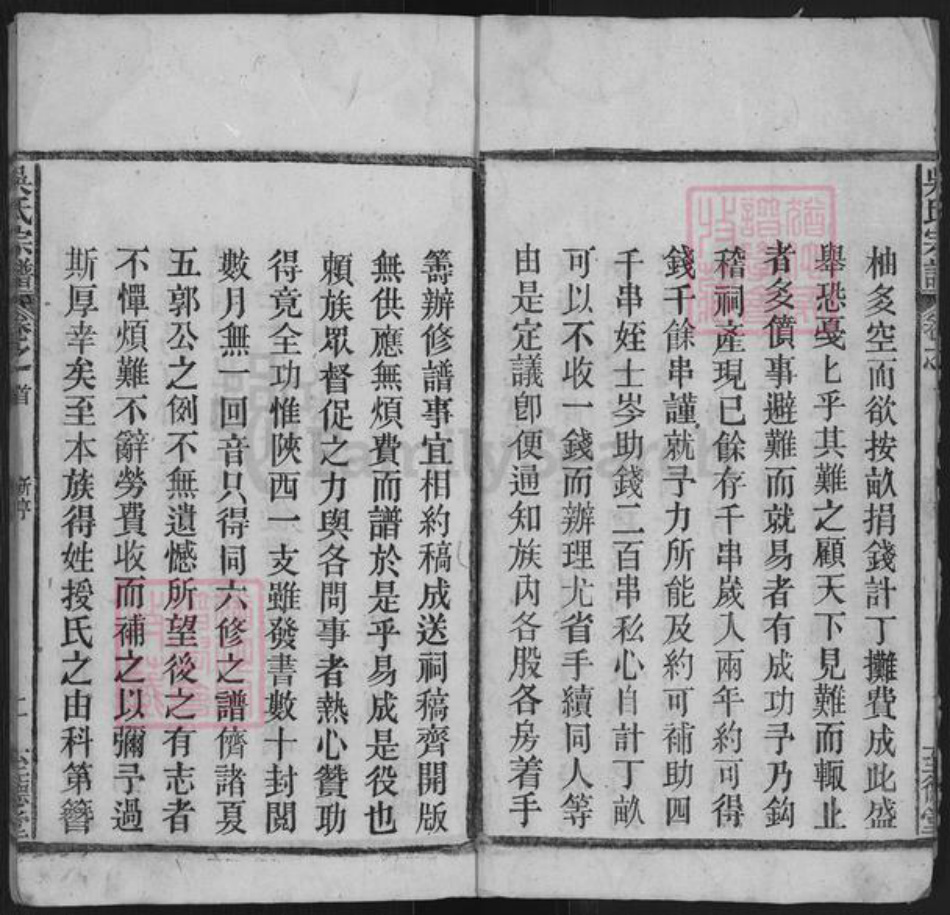 柚多空而欲按畝捐錢計丁攤費成此盛
舉恐戞上乎其難之顧天下見難而輒止
者多僨事避難而就易者有成功予乃鈎
稽祠產現已餘存千串歲入兩年約可得
錢千餘串謹就予力所能及約可補助四
千串姪士岑助錢二百串私心自計丁畝
可以不收一錢而辦理尤省手續同人等
由是定議卽便通知族內各股各房着手
籌辦修譜事宜相約稿成送祠稿齊開版
無供應無煩費而譜於是乎易成是役也
賴族眾督促之力與各問事者熱心贊助
得竟全功惟陝西一支雖發書數十封閱
數月無一回音只得同六修之譜儕諸夏
五郭公之例不無遺憾所望後之有志者
不憚煩難不辭勞費收而補之以彌予過
斯厚幸矣至本族得姓授氏之由科第簪
吳氏宗譜
卷之首
二